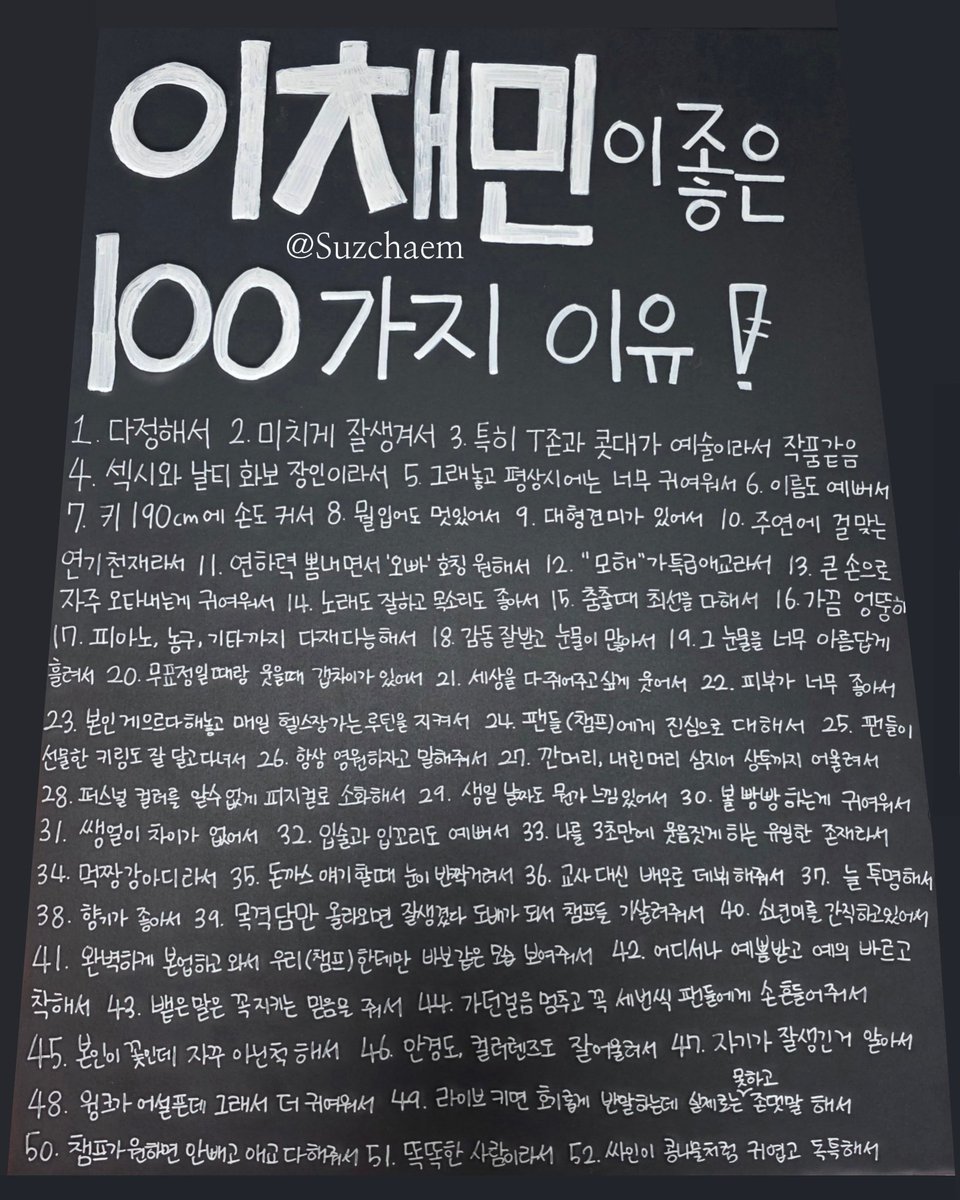 이채민이 좋은
@Suzchaem
100가지 이유!
1. 다정해서 2. 미치게 잘생겨서 3. 특히 T존과 콧대가 예술이라서 작품같음
4. 섹시와 날티 화보 장인이라서 5. 그래놓고 평상시에는 너무 귀여워서 6. 이름도 예뻐서
7. 키 190cm에 손도 커서 8. 뭘입어도 멋있어서 9. 대형견미가 있어서 10. 주연에 걸맞는
연기천재라서 11. 연하력 뽐내면서 '오빠' 호칭 원해서 12. "모해"가 특급애교라서 13. 큰 손으로
자주 오다내는게 귀여워서 14. 노래도 잘하고 목소리도 좋아서 15. 춤출때 최선을 다해서 16. 가끔 엉뚱해
17. 피아노, 농구, 기타까지 다재다능해서 18. 감동 잘받고 눈물이 많아서 19. 그 눈물을 너무 아름답게
흘려서 20. 무표정일때랑 웃을때 갭차이가 있어서 21. 세상을 다 쥐어주고싶게 웃어서 22. 피부가 너무 좋아서
23. 본인 게으르다해놓고 매일 헬스장가는 루틴을 지켜서 24. 팬들(챔프)에게 진심으로 대해서 25. 팬들이
선물한 키링도 잘 달고다녀서 26. 항상 영원하자고 말해줘서 27. 깐머리, 내린머리 심지어 상투까지 어울려서
28. 퍼스널 컬러를 알수없게 피지컬로 소화해서 29. 생일 날짜도 뭔가 느낌있어서 30. 볼 빵빵 하는게 귀여워서
31. 쌩얼이 차이가 없어서 32. 입술과 입꼬리도 예뻐서 33. 나를 3초만에 웃음짓게 하는 유일한 존재라서
34. 먹짱강아디라서 35. 돈까스 얘기할때 눈이 반짝거려서 36. 교사 대신 배우로 데뷔 해줘서 37. 늘 투명해서
38. 향기가 좋아서 39. 목격담만 올라오면 잘생겼다 도배가 되서 챔프들 기살려줘서 40. 소년미를 간직하고있어서
41. 완벽하게 본업하고 와서 우리(챔프)한테만 바보같은 모습 보여줘서 42. 어디서나 예쁨받고 예의 바르고
착해서 43. 뱉은말은 꼭 지키는 믿음을 줘서 44. 가던걸음 멈추고 꼭 세번씩 팬들에게 손흔들어줘서
45. 본인이 꽃인데 자꾸 아닌척 해서 46. 안경도, 컬러렌즈도 잘어울려서 47. 자기가 잘생긴거 알아서
48. 윙크가 어설픈데 그래서 더 귀여워서 49. 라이브 키면 호기롭게 반말하는데 실제로는 못하고 존댓말 해서
50. 챔프가 원하면 안빼고 애교 다해줘서 51. 똑똑한 사람이라서 52. 싸인이 콩나물처럼 귀엽고 독특해서